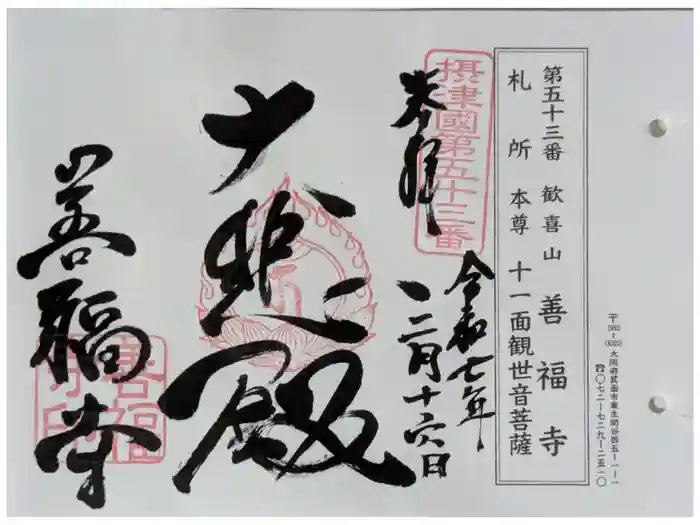 〒562-0025 大阪府箕面市粟生間谷西五-一-一
☎〇七二-七二九-二五一〇
第五十三番 歓喜山 善福寺
札所本尊 十一面観世音菩薩
摂津國第五十三番
奉拝
令和七年
二月十六日
大悲殿
善福寺
善福寺印